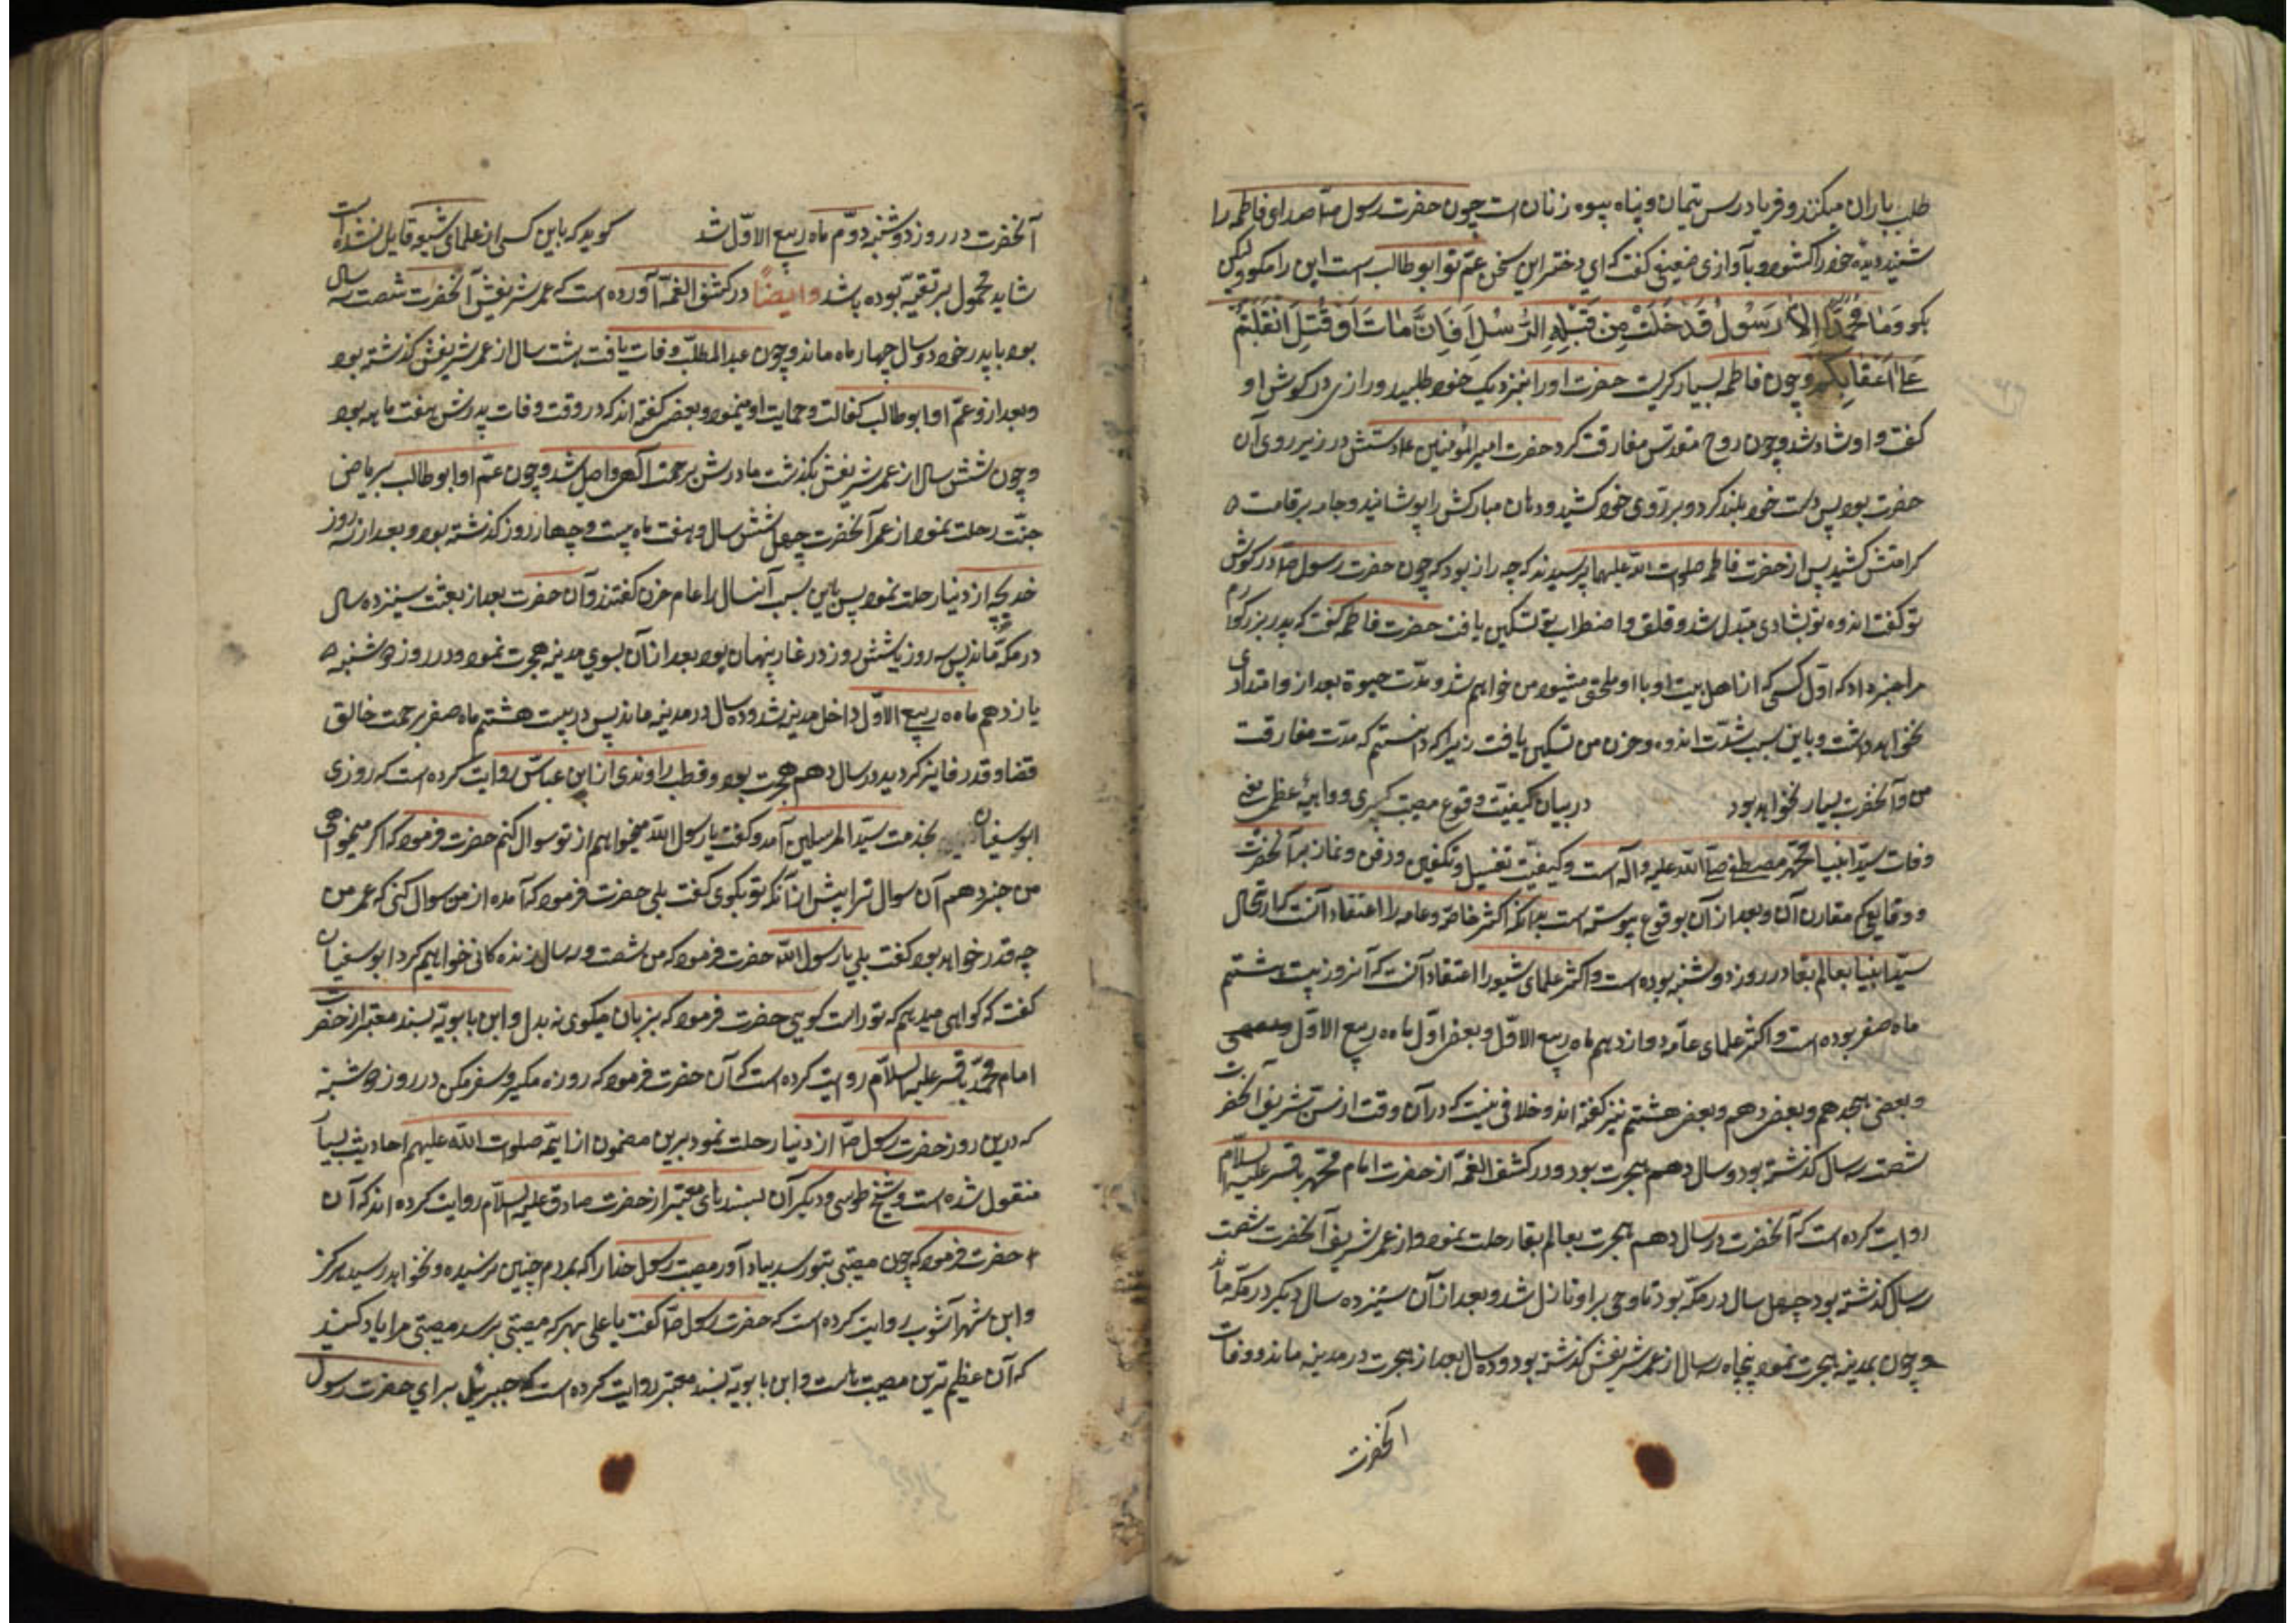 طلب باران میکنند و فریادرس یتیمان و پناه بیوه زنان است چون حضرت رسول ص صدای فاطمه را
شنید دیده خود را کشود و بآوازی ضعیفی کفت که ای دختر این سخن عم تو ابوطالب است این را مکو ولیکن
بکو وَمَا مُحَمَّدٌ اِلاّ رَسُولٌ قَدْ خَلَتْ مِن قَبْلِهِ الرُّسُلُ اَفَاِنْ مَاتَ اَوْ قُتِلَ انْقَلَبْتُمْ
عَلیٰ اَعْقَابِکُمْ و چون فاطمه بسیار کریست حضرت او را بنزدیک خود طلبید و رازی در کوش او
کفت و او شاد شد و چون روح مقدس مفارقت کرد حضرت امیر المؤمنین ع دستش در زیر روی آن
حضرت بود پس دست خود بلند کرد و بر روی خود کشید و دهان مبارکش را پوشانید و جامه بر قامت
کرامتش کشید پس از حضرت فاطمه صلوات الله علیها پرسیدند که چه راز بود که چون حضرت رسول ص در کوش
تو کفت اندوه تو بشادی مبدل شد و قلق و اضطراب تو تسکین یافت حضرت فاطمه کفت که پدر بزرکوارم
مرا خبر داد که اول کسی که از اهل بیت او با او ملحق میشود من خواهم شد و مدت حیوة بعد از او امتدادی
نخواهد داشت و باین سبب شدت اندوه و حزن من تسکین یافت زیرا که دانستم که مدت مفارقت
من و آنحضرت بسیار نخواهد بود در بیان کیفیت وقوع مصیبت کبری و واهیهٔ عظمی یعنی
وفات سید انبیا محمد مصطفی صلی الله علیه و آله است و کیفیت تغسیل و تکفین و دفن و نماز بر آنحضرت
و وقایعی که مقارن آن و بعد از آن بوقوع پیوسته است بدانکه اکثر خاصه و عامه را اعتقاد آنست که ارتحال
سید انبیا بعالم بقا در روز دوشنبه بوده است و اکثر علمای شیعه را اعتقاد آنست که آنروز بیست هشتم
ماه صفر بوده است و اکثر علمای عامه دوازدهم ماه ربیع الاول و بعضی اول ماه ربیع الاول
و بعضی هجدهم و بعضی دهم و بعضی هشتم نیز کفته اند و خلافی نیست که در آن وقت از سن شریف آنحضرت
شصت و سه سال کذشته بود و سال دهم هجرت بود و در کشف الغمه از حضرت امام محمد باقر علیه السلام
روایت کرده است که آنحضرت در سال دهم هجرت بعالم بقا رحلت نمود و از عمر شریف آنحضرت شصت
و سه سال کذشته بود چهل سال در مکه بود تا وحی بر او نازل شد و بعد از آن سیزده سال دیکر در مکه ماند
و چون بمدینه هجرت نمود پنجاه و سه سال از عمر شریفش کذشته بود و ده سال بعد از هجرت در مدینه ماند و وفات
آنحضرت
آنحضرت در روز دوشنبه دوّم ماه ربیع الاوّل شد کوید که باین کسی از علمای شیعه قایل نشده است
شاید محمول بر تقیه بوده باشد وایضاً در کشف الغمه آورده است که عمر شریف آنحضرت شصت سه سال
بود با پدر خود دو سال چهار ماه ماند و چون عبد المطلب وفات یافت هشت سال از عمر شریفش کذشته بود
و بعد از و عم او ابوطالب کفالت و حمایت او مینمود و بعضی کفته اند که در وقت وفات پدرش هفت ماهه بود
و چون شش سال از عمر شریفش بکذشت مادرش برحمت الهی واصل شد و چون عم او ابوطالب بریاض
جنت رحلت نمود از عمر آنحضرت چهل شش سال و هفت ماه بیست و چهار روز کذشته بود و بعد از سه روز
خدیجه از دنیا رحلت نمود پس باین سبب آنسال را عام حزن کفتند و آن حضرت بعد از بعثت سیزده سال
در مکه ماند پس سه روز یا شش روز در غار پنهان بود بعد از آن بسوی مدینه هجرت نمود و در روز دوشنبه
یازدهم ماه ربیع الاول داخل مدینه شد و ده سال در مدینه ماند پس در بیست هشتم ماه صفر برحمت خالق
قضا و قدر فایز کردید و در سال دهم هجرت بود و قطب راوندی از ابن عباس روایت کرده است که روزی
ابوسفیان بخدمت سید المرسلین آمد و کفت یا رسول الله میخواهم از تو سوال کنم حضرت فرمود که اکر میخواهی
من خبر دهم آن سوال ترا پیش از آنکه تو بکوی کفت بلی حضرت فرمود که آمده از من سوال کنی که عمر من
چه قدر خواهد بود کفت بلی یا رسول الله حضرت فرمود که من شصت و سه سال زنده کانی خواهیم کرد ابوسفیان
کفت که کواهی میدهم که تو راست کویی حضرت فرمود که بزبان میکوی نه بدل و ابن بابویه بسند معتبر از حضرت
امام محمد باقر علیه السلام روایت کرده است که آن حضرت فرمود که روزه مکیر و سفر مکن در روز دوشنبه
که درین روز حضرت رسول ص از دنیا رحلت نمود برین مضمون از ائمه صلوات الله علیهم احادیث بسیار
منقول شده است و شیخ طوسی و دیکران بسندهای معتبر از حضرت صادق علیه السلام روایت کرده اند که آن
حضرت فرمود که چون مصیبتی بتو رسد بیاد آور مصیبت رسول خدا را که بمردم چنین نرسیده و نخواهد رسید هرکز
و ابن شهرآشوب روایت کرده است که حضرت رسول ص کفت یا علی بهر که مصیبتی برسد مصیبتی مرا یاد کنید
که آن عظیم ترین مصیبت هاست و ابن بابویه بسند معتبر روایت کرده است که جبرئیل برای حضرت رسول